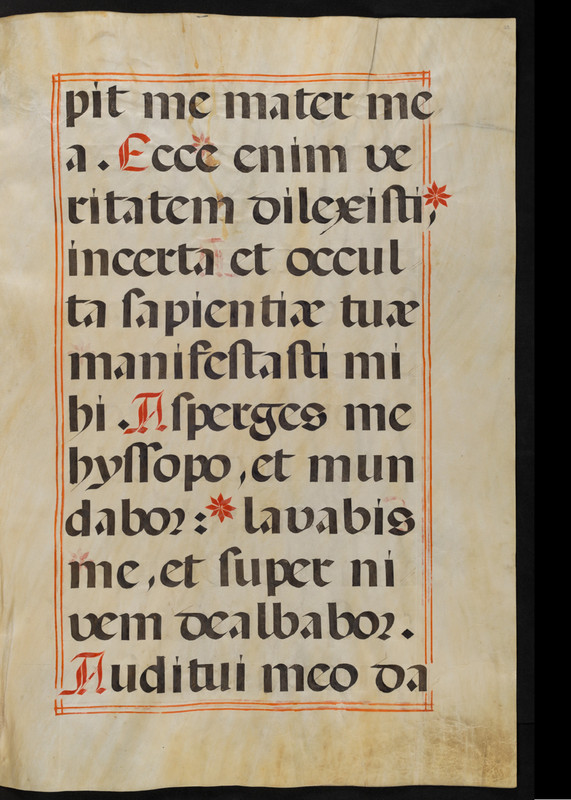 pit me mater me
a. Ecce enim ve
ritatem dilexisti,*
incerta et occul
ta sapientiæ tuæ
manifestasti mi
hi. Asperges me
hyssopo, et mun
dabor:* lavabis
me, et super ni
vem dealbabor.
Auditui meo da